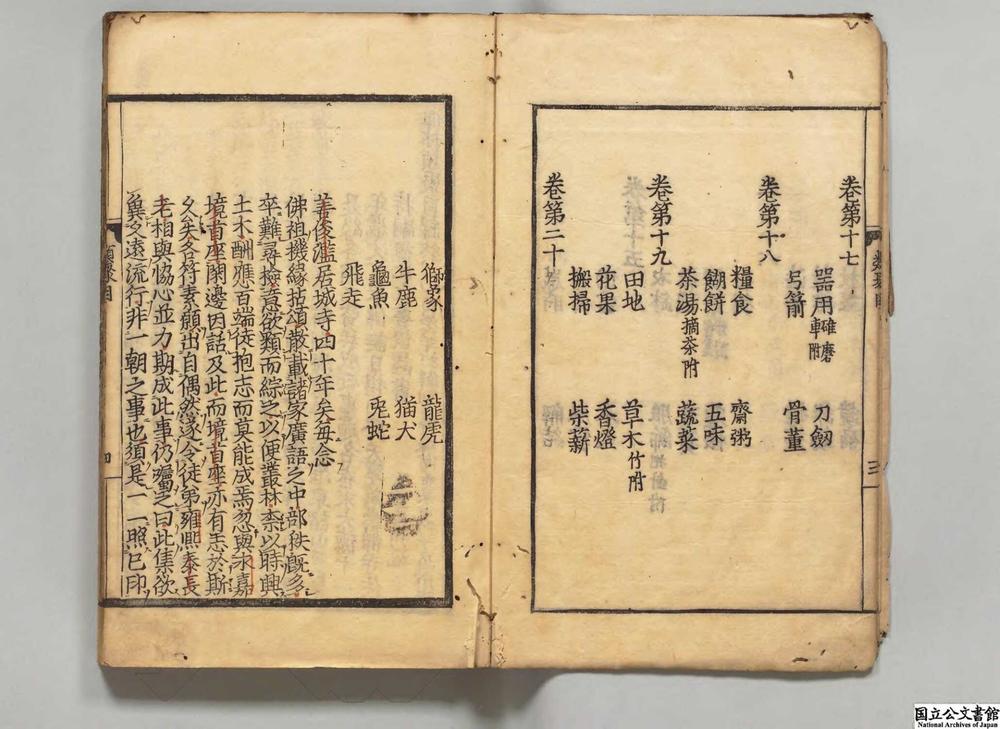 卷第十七
器用碓磨車附　刀劒
弓箭　骨董
卷第十八
糧食　齋粥
餬餅　五味
茶湯摘茶附　蔬菜
卷第十九
田地　草木竹附
花果　香燈
搬掃　柴薪
卷第二十
類聚目
三
獅象　龍虎
牛鹿　猫犬
龜魚　兎蛇
飛走
善俊濫居城寺四十年矣每念
佛祖機緣拈頌散載諸家廣語之中部秩既多
卒難尋撿意欲類而綜之以便叢林柰以時興
土木酬應百端徒抱志而莫能成焉忽與永嘉
境首座閑邊因話及此而境首座亦有志於斯
久矣各符素願出自偶然遂令徒弟雍熙泰長
老相與恊心並力期成此事仍囑之曰此集欲
冀久遠流行非一朝之事也須是一一照已印
類聚目
四
国立公文書館
National Archives of Japan